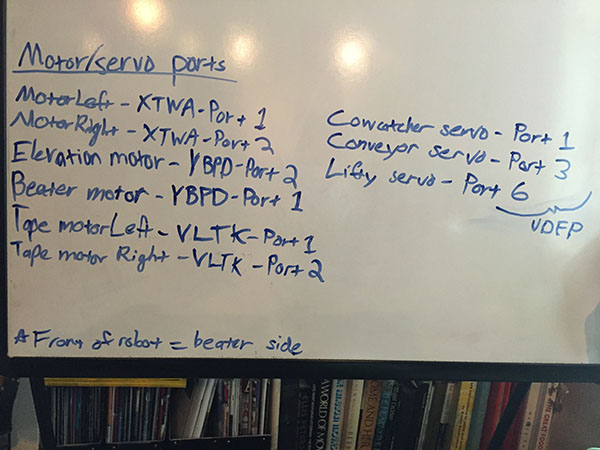 Motor/servo ports
MotorLeft - XTWA-Port 1
MotorRight - XTWA-Port 2
Elevation motor - YBPD-Port 2
Beater motor - YBPD-Port 1
Tape motor Left - VLTK-Port 1
Tape motor Right - VLTK - Port 2
Cowcatcher servo - Port 1
Conveyor servo - Port 3
Lifty servo - Port 6
VDFP
* Front of robot = beater side